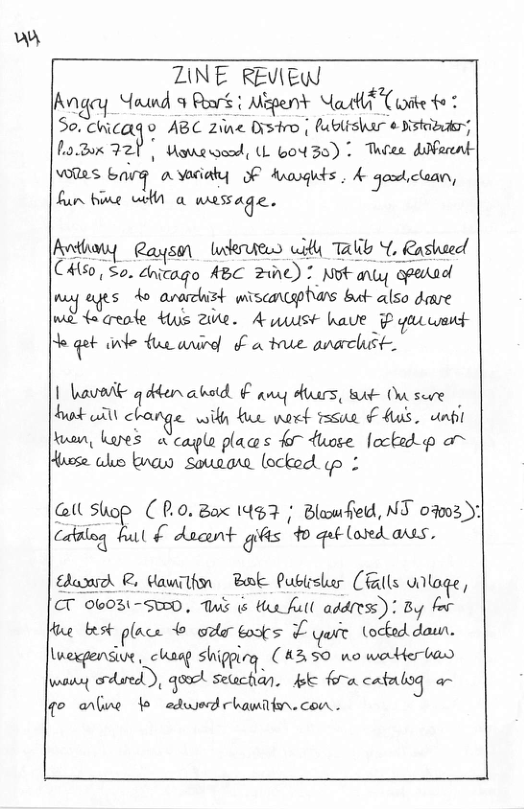 44
ZINE REVIEW
Angry Yound & Poor's; Mispent Youth #2 (write to:
So. Chicago ABC Zine Distro; Publisher & Distributor;
P.O. Box 721; Homewood, IL 60430): Three different
voices bring a variaty of thoughts. A good, clean,
fun time with a message.
Anthony Rayson Interview with Talib Y. Rasheed
(Also, So. Chicago ABC Zine): Not only opened
my eyes to anarchist misconceptions but also drove
me to create this zine. A must have if you want
to get into the mind of a true anarchist.
I haven't gotten ahold of any others, but I'm sure
that will change with the next issue of this. Until
then, here's a couple places for those locked up or
those who know someone locked up:
Cell Shop (P.O. Box 1487; Bloomfield, NJ 07003):
Catalog full of decent gifts to get loved ones.
Edward R. Hamilton Book Publisher (Falls Village,
CT 06031-5000. This is the full address): By far
the best place to order books if you're locked down.
Inexpensive, cheap shipping ($3.50 no matter how
many ordered), good selection. Ask for a catalog or
go online to edwardrhamilton.com.